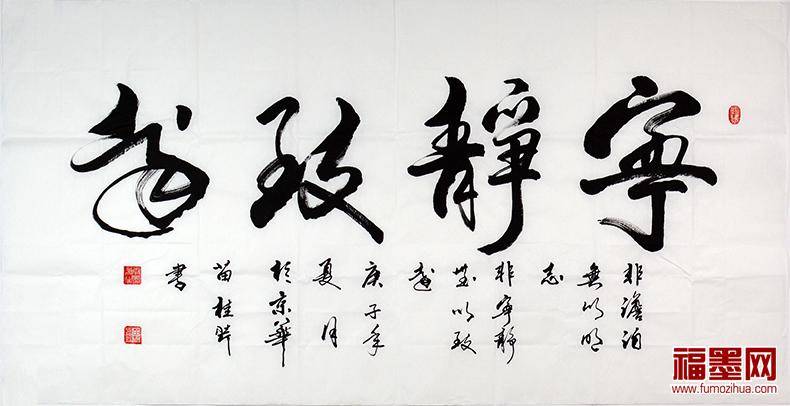 寧靜致遠
非澹泊
無以明
志
非寧靜
無以致
遠
庚子年
夏月
於京華
苗桂
書
福墨网
www.fumozihua.com